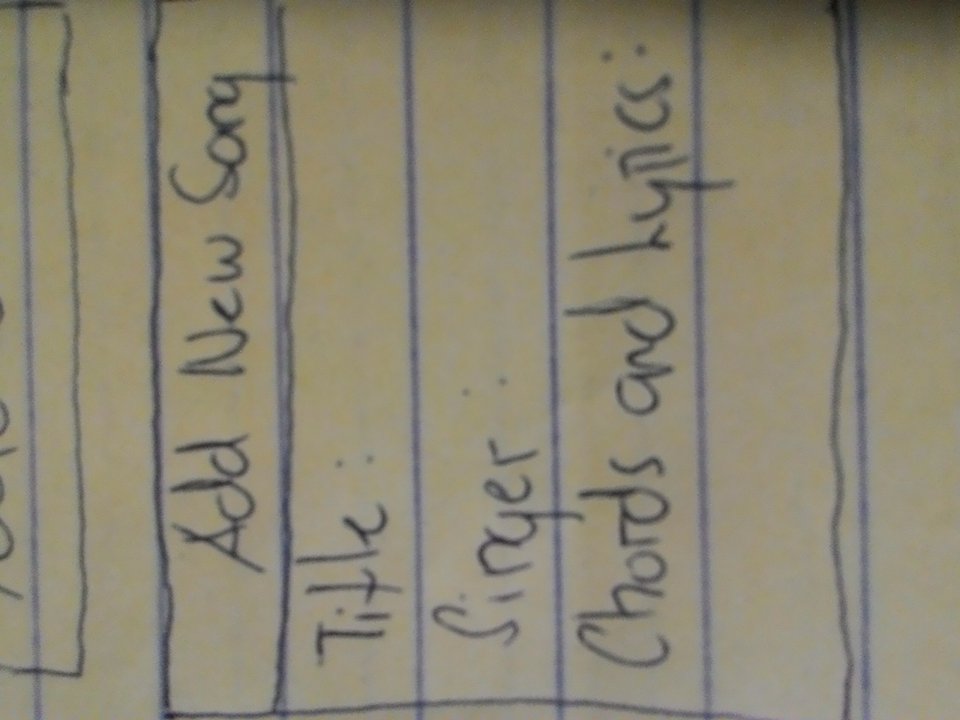 Add New Song
Title:
Singer:
Chords and Lyrics: